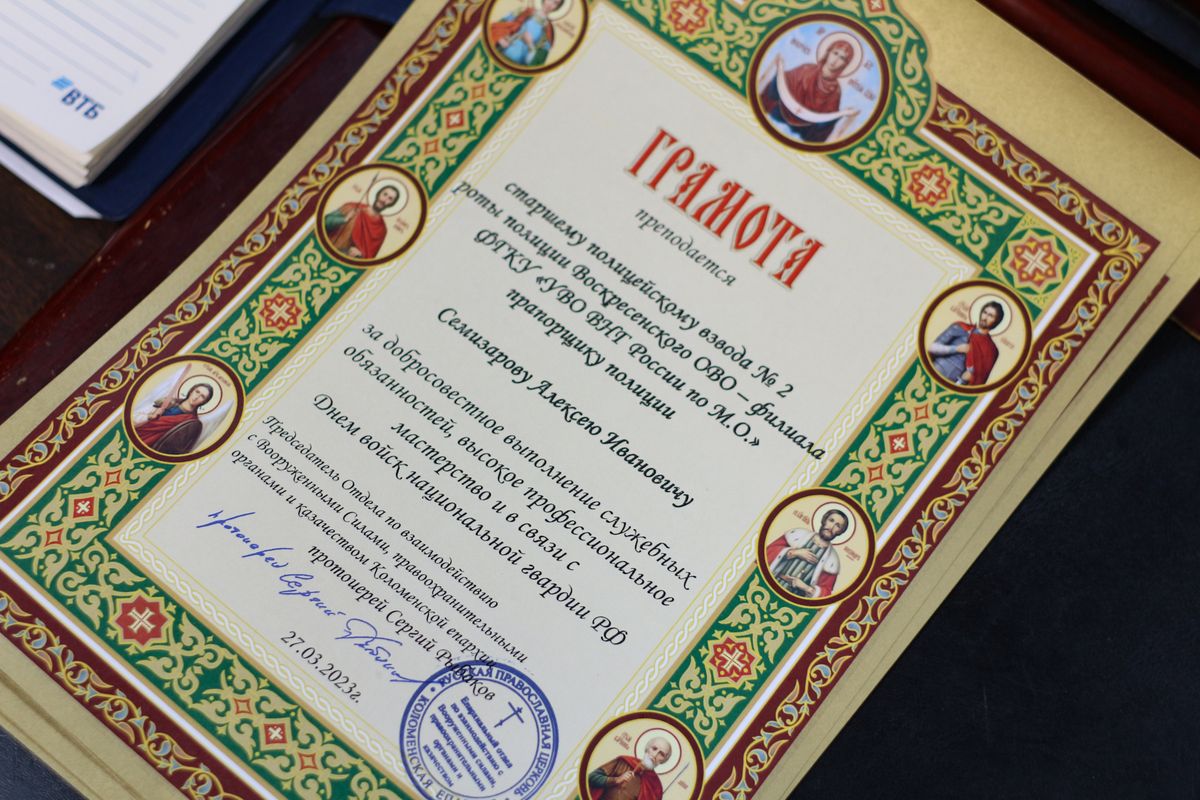 #ВТБ
ГРАМОТА
преподается
старшему полицейскому взвода № 2
роты полиции Воскресенского ОВО – филиала
ФГКУ «УВО ВНГ России по М.О.»
прапорщику полиции
Семизарову Алексею Ивановичу
за добросовестное выполнение служебных
обязанностей, высокое профессиональное
мастерство и в связи с
Днем войск национальной гвардии РФ
Председатель Отдела по взаимодействию
с Вооруженными Силами, правоохранительными
органами и казачеством Коломенской епархии
протоиерей Сергий Рыбаков
протоиерей Сергий
27.03.2023г.
РУССКАЯ ПРАВОСЛАВНАЯ ЦЕРКОВЬ
КОЛОМЕНСКАЯ
Епархиальный отдел
по взаимодействию с
Вооруженными силами,
правоохранительными
органами и
казачеством